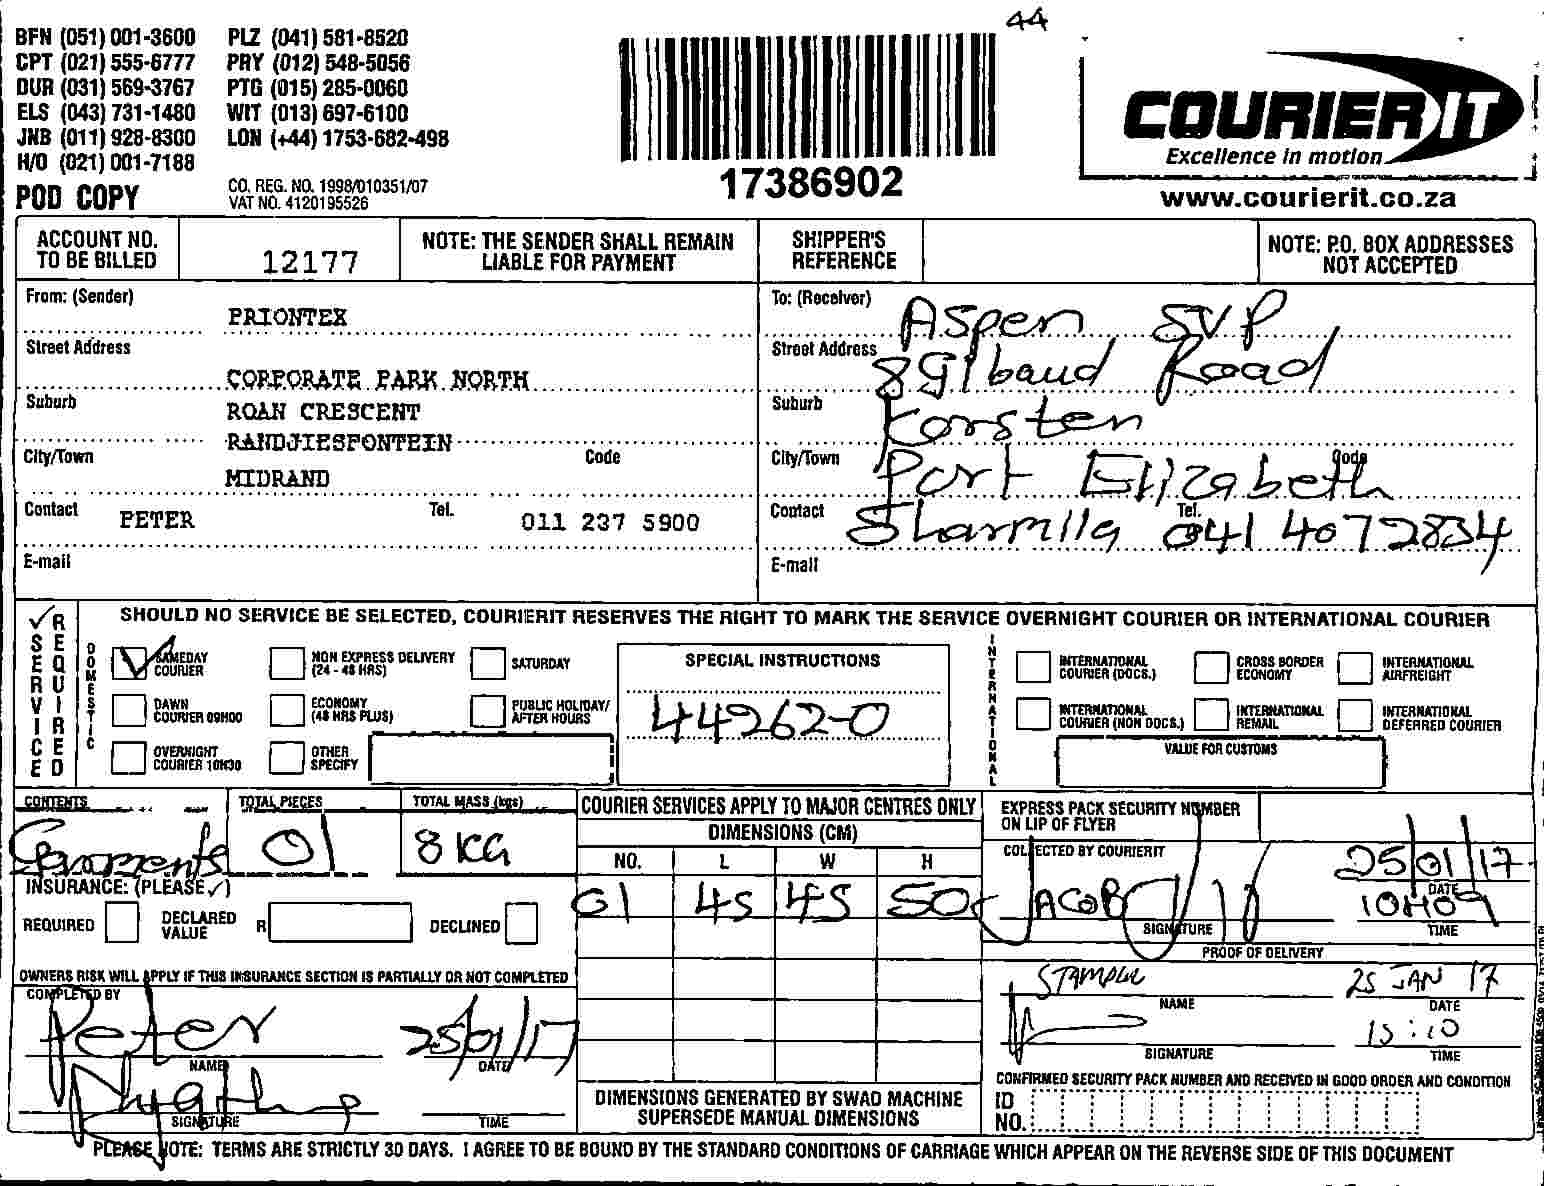 44
BFN (051) 001-3600 PLZ (041) 581-8520
CPT (021) 555-6777 PRY (012) 548-5056
DUR (031) 569-3767 PTG (015) 285-0060
ELS (043) 731-1480 WIT (013) 697-6100
JNB (011) 928-8300 LON (+44) 1753-682-498
H/O (021) 001-7188
POD COPY
CO. REG. NO. 1998/010351/07
VAT NO. 4120195526
17386902
COURIER IT
Excellence in motion
www.courierit.co.za
ACCOUNT NO. TO BE BILLED
12177
NOTE: THE SENDER SHALL REMAIN LIABLE FOR PAYMENT
SHIPPER'S REFERENCE
NOTE: P.O. BOX ADDRESSES NOT ACCEPTED
From: (Sender)
PRIONTEX
Street Address
CORPORATE PARK NORTH
Suburb
ROAN CRESCENT
RANDJIESFONTEIN
City/Town Code
MIDRAND
Contact PETER Tel. 011 237 5900
E-mail
To: (Receiver) Aspen SVP
Street Address 8 Gibaud Road
Suburb Korsten
City/Town Port Elizabeth Code
Contact Sharmilla Tel. 041 4072834
E-mail
SERVICE REQUIRED
SHOULD NO SERVICE BE SELECTED, COURIERIT RESERVES THE RIGHT TO MARK THE SERVICE OVERNIGHT COURIER OR INTERNATIONAL COURIER
DOMESTIC
SAMEDAY COURIER
NON EXPRESS DELIVERY (24 - 48 HRS)
SATURDAY
DAWN COURIER 09H00
ECONOMY (48 HRS PLUS)
PUBLIC HOLIDAY/ AFTER HOURS
OVERNIGHT COURIER 10H30
OTHER SPECIFY
SPECIAL INSTRUCTIONS
44262-0
INTERNATIONAL
INTERNATIONAL COURIER (DOCS.)
CROSS BORDER ECONOMY
INTERNATIONAL AIRFREIGHT
INTERNATIONAL COURIER (NON DOCS.)
INTERNATIONAL REMAIL
INTERNATIONAL DEFERRED COURIER
VALUE FOR CUSTOMS
CONTENTS
Garments
TOTAL PIECES
01
TOTAL MASS (kgs)
8 KG
INSURANCE: (PLEASE ✓)
REQUIRED DECLARED VALUE R DECLINED
OWNERS RISK WILL APPLY IF THIS INSURANCE SECTION IS PARTIALLY OR NOT COMPLETED
COMPLETED BY
Peter 25/01/17
NAME DATE
SIGNATURE TIME
COURIER SERVICES APPLY TO MAJOR CENTRES ONLY
DIMENSIONS (CM)
NO. L W H
01 45 45 50
DIMENSIONS GENERATED BY SWAD MACHINE SUPERSEDE MANUAL DIMENSIONS
EXPRESS PACK SECURITY NUMBER ON LIP OF FLYER
COLLECTED BY COURIERIT
25/01/17
DATE
JACOB 10H09
SIGNATURE TIME
PROOF OF DELIVERY
25 JAN 17
NAME DATE
15:10
SIGNATURE TIME
CONFIRMED SECURITY PACK NUMBER AND RECEIVED IN GOOD ORDER AND CONDITION
ID NO.
PLEASE NOTE: TERMS ARE STRICTLY 30 DAYS. I AGREE TO BE BOUND BY THE STANDARD CONDITIONS OF CARRIAGE WHICH APPEAR ON THE REVERSE SIDE OF THIS DOCUMENT